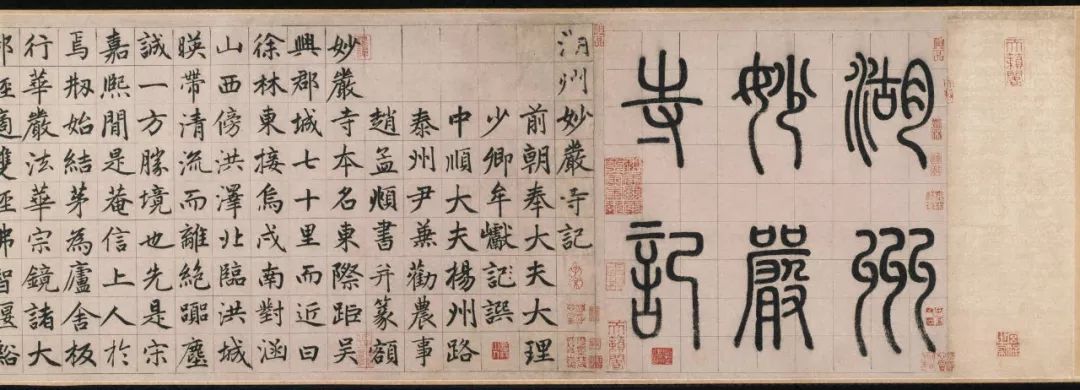 湖州
妙嚴
寺記
湖州妙嚴寺記
前朝奉大夫大理
少卿牟巘記譔
中順大夫楊州路
泰州尹兼勸農事
趙孟頫書并篆額
妙嚴寺本名東際距吳
興郡城七十里而近曰
徐林東接烏戍南對涵
山西傍洪澤北臨洪城
暎帶清流而離絶囂塵
誠一方勝境也先是宋
嘉熙間是菴信上人於
焉刱始結茅為廬舍板
行華嚴法華宗鏡諸大
部經適雙徑佛智偃谿